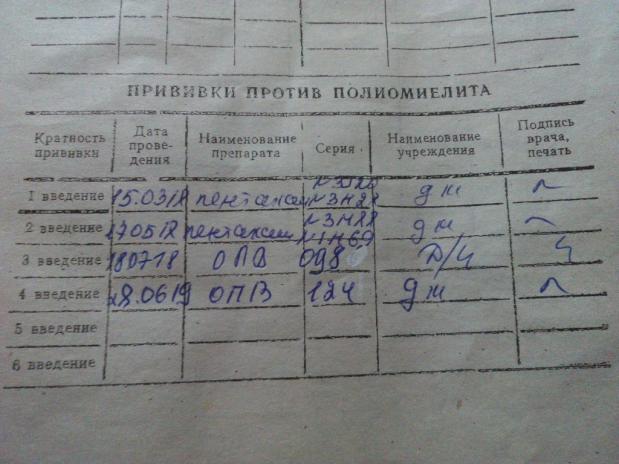 ПРИВИВКИ ПРОТИВ ПОЛИОМИЕЛИТА
Кратность прививки Дата прове-дения Наименование препарата Серия Наименование учреждения Подпись врача, печать
1 введение 15.0318 пентаксим N3H28 дм
2 введение 170518 пентаксим N3H28 дм
3 введение 180718 ОПВ 098
4 введение 28.0619 ОПВ 124 дм
5 введение
6 введение